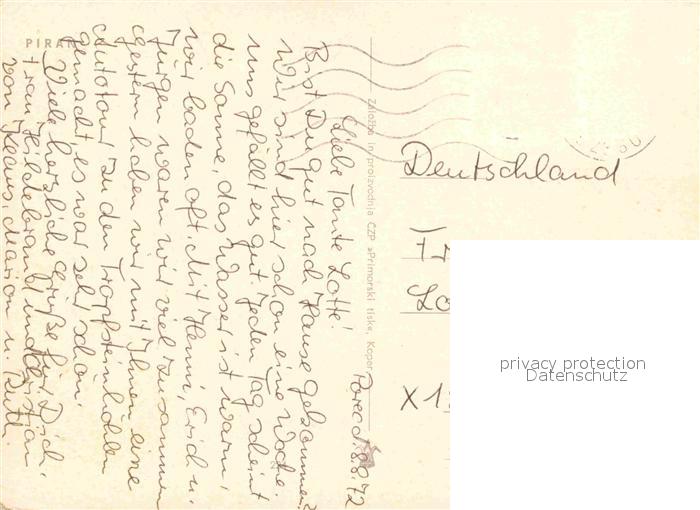 PIRAN
Porec d. 8.8.72
Liebe Tante Lotti!
Bist Du gut nach Hause gekommen?
Wir sind hier schon eine Woche.
uns gefällt es gut. Jeden Tag scheint
die Sonne, das Wasser ist warm,
wir baden oft. Mit Henni, Erich u.
Jürgen waren wir viel zusammen
gestern haben wir mit Ihnen eine
Autotour zu den Tropfsteinhöhlen
gemacht, es war sehr schön.
Viele herzliche Grüße für Dich,
Frau Hildebrandt und Christian
von Klaus, Marion u.
Založba in proizvodnja ČZP »Primorski tisk«, Koper
Deutschland
Fr
Lo
X 1
privacy protection
Datenschutz